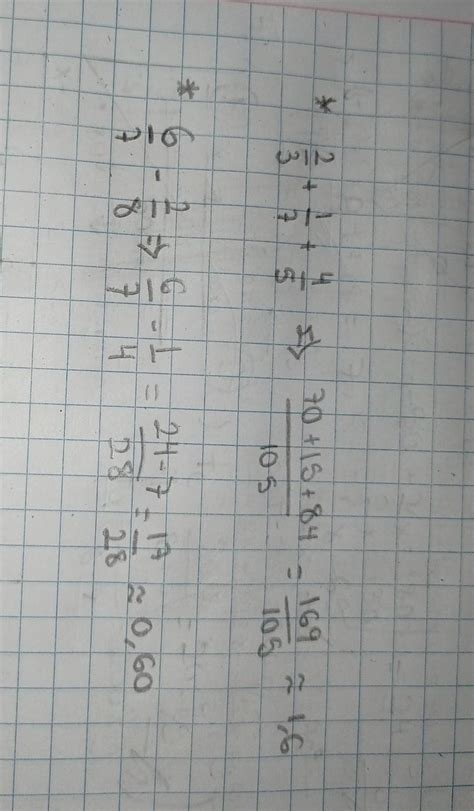 * 2/3 + 1/7 + 4/5 ⇒ 70+15+84/105 = 169/105 ≈ 1,6
* 6/7 - 2/8 ⇒ 6/7 - 1/4 = 24-7/28 = 17/28 ≈ 0,60